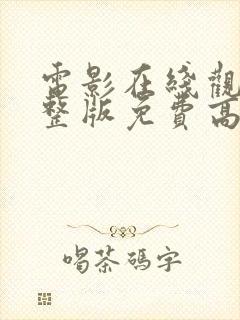 電影在綫觀
整版免費高
喝茶碼字